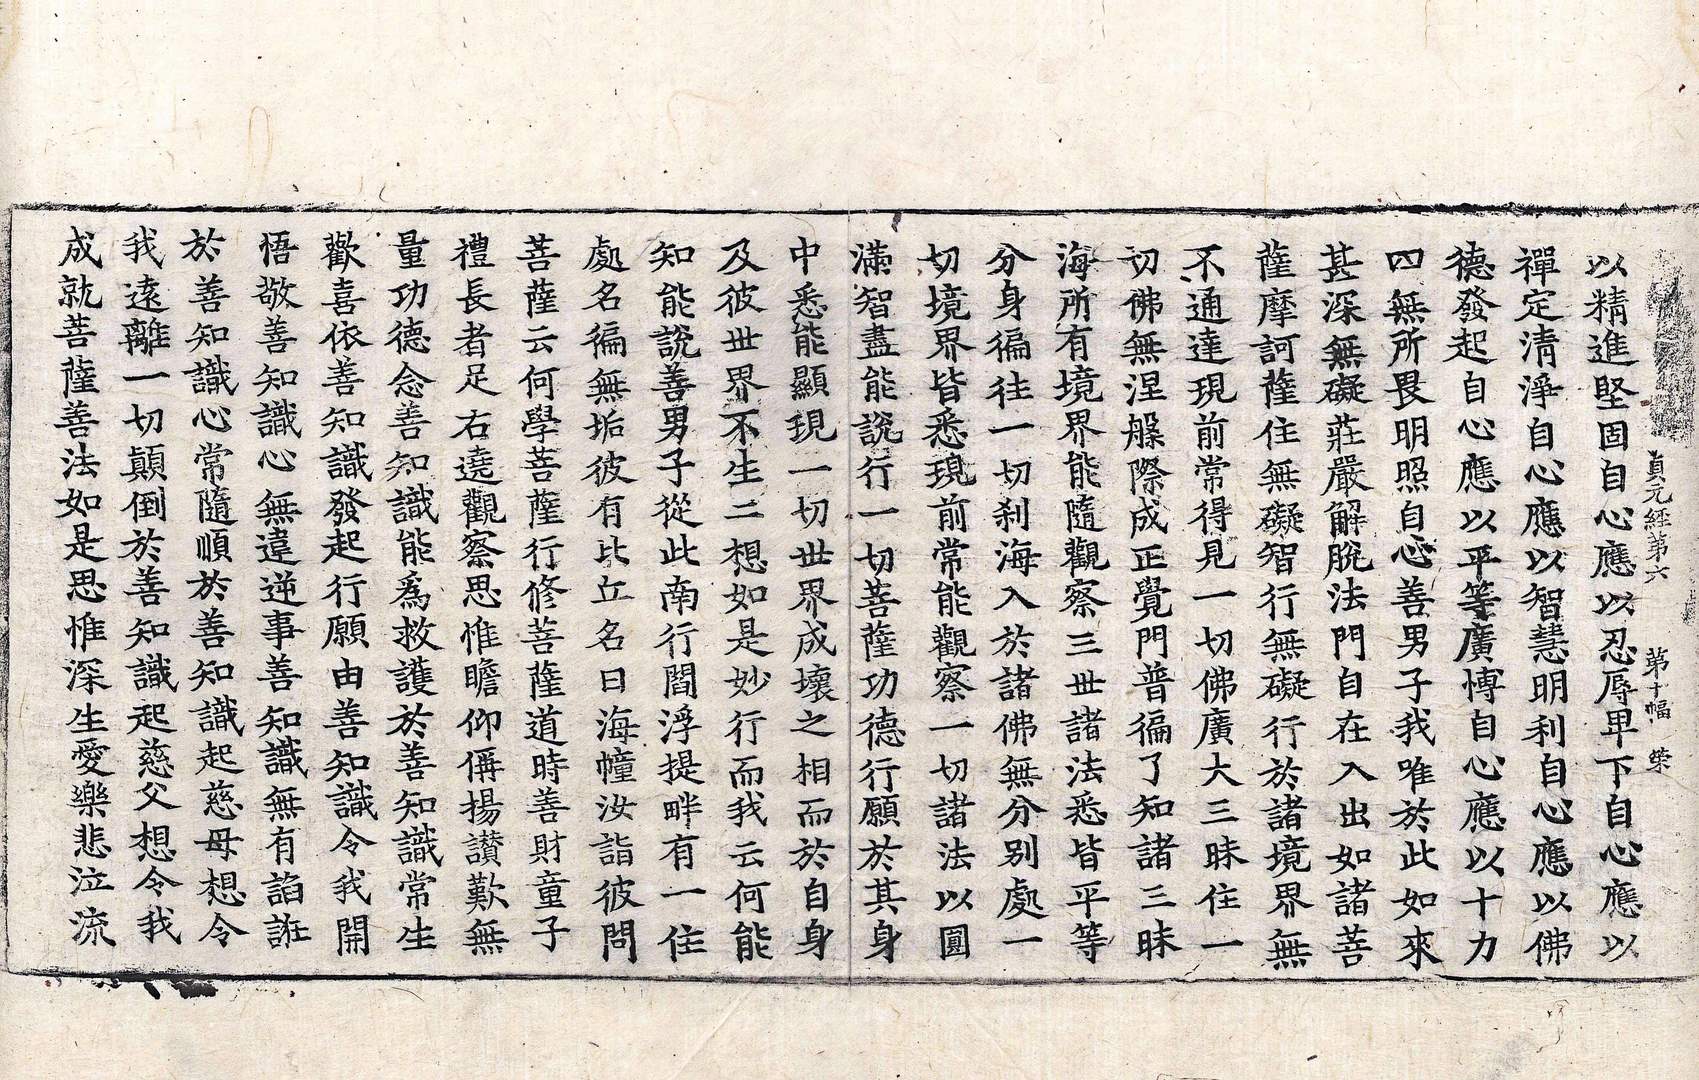 貞元經第六 第十幅 榮
以精進堅固自心應以忍辱卑下自心應以
禪定清淨自心應以智慧明利自心應以佛
德發起自心應以平等廣博自心應以十力
四無所畏明照自心善男子我唯於此如來
甚深無礙莊嚴解脫法門自在入出如諸菩
薩摩訶薩住無礙智行無礙行於諸境界無
不通達現前常得見一切佛廣大三昧住一
切佛無涅槃際成正覺門普徧了知諸三昧
海所有境界能隨觀察三世諸法悉皆平等
分身徧往一切刹海入於諸佛無分別處一
切境界皆悉現前常能觀察一切諸法以圓
滿智盡能說行一切菩薩功德行願於其身
中悉能顯現一切世界成壞之相而於自身
及彼世界不生二想如是妙行而我云何能
知能說善男子從此南行閻浮提畔有一住
處名徧無垢彼有比丘名曰海幢汝詣彼問
菩薩云何學菩薩行修菩薩道時善財童子
禮長者足右遶觀察思惟瞻仰偁揚讃歎無
量功德念善知識能爲救護於善知識常生
歡喜依善知識發起行願由善知識令我開
悟敬善知識心無違逆事善知識無有諂誑
於善知識心常隨順於善知識起慈母想令
我遠離一切顛倒於善知識起慈父想令我
成就菩薩善法如是思惟深生愛樂悲泣流